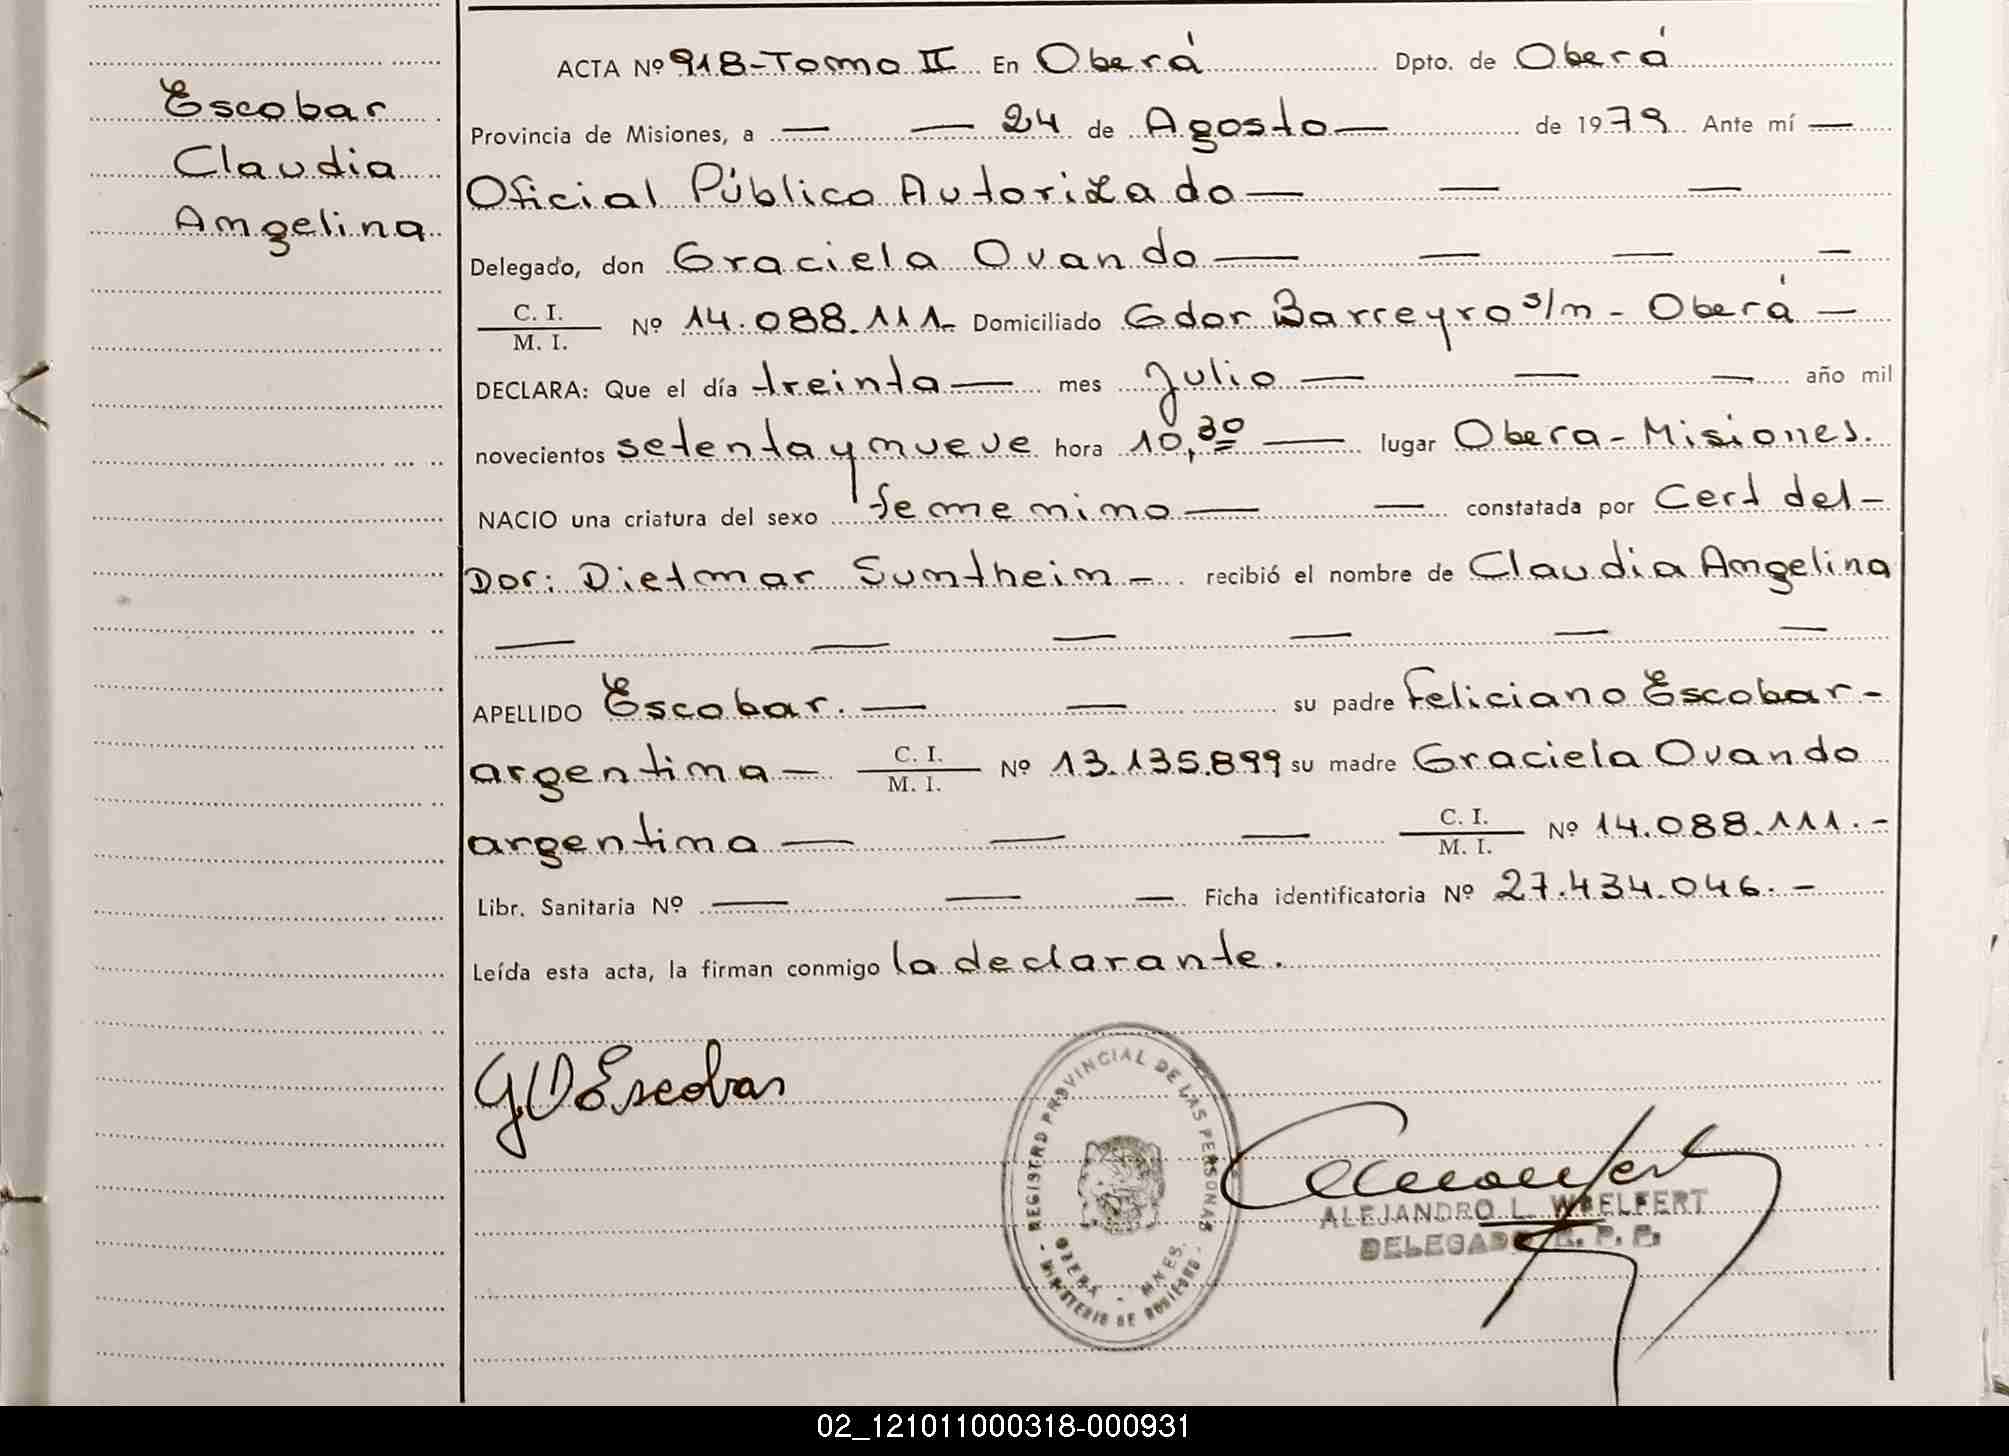 Escobar
Claudia
Angelina
ACTA Nº 918-Tomo II En Oberá Dpto. de Oberá
Provincia de Misiones, a — — 24 de Agosto — de 1979 Ante mí —
Oficial Público Autorizado — — —
Delegado, don Graciela Ovando — — — —
C. I.
M. I. Nº 14.088.111.- Domiciliado Gdor Barreyro s/n - Oberá —
DECLARA: Que el día treinta — mes Julio — — — año mil
novecientos setenta y nueve hora 10,30 — lugar Obera - Misiones.
NACIO una criatura del sexo femenino — — constatada por Cert del -
Dor: Dietmar Sumtheim - recibió el nombre de Claudia Angelina
— — — — — —
APELLIDO Escobar. — — su padre Feliciano Escobar -
argentina — C. I.
M. I. Nº 13.135.899 su madre Graciela Ovando
argentina — — — C. I.
M. I. Nº 14.088.111.-
Libr. Sanitaria Nº — — — Ficha identificatoria Nº 27.434.046.-
Leída esta acta, la firman conmigo la declarante.
G O Escobar
REGISTRO PROVINCIAL DE LAS PERSONAS
OBERA - MNES.
MINISTERIO DE GOBIERNO
ALEJANDRO L. WOELFERT
DELEGADO R. P. P.
02_121011000318-000931